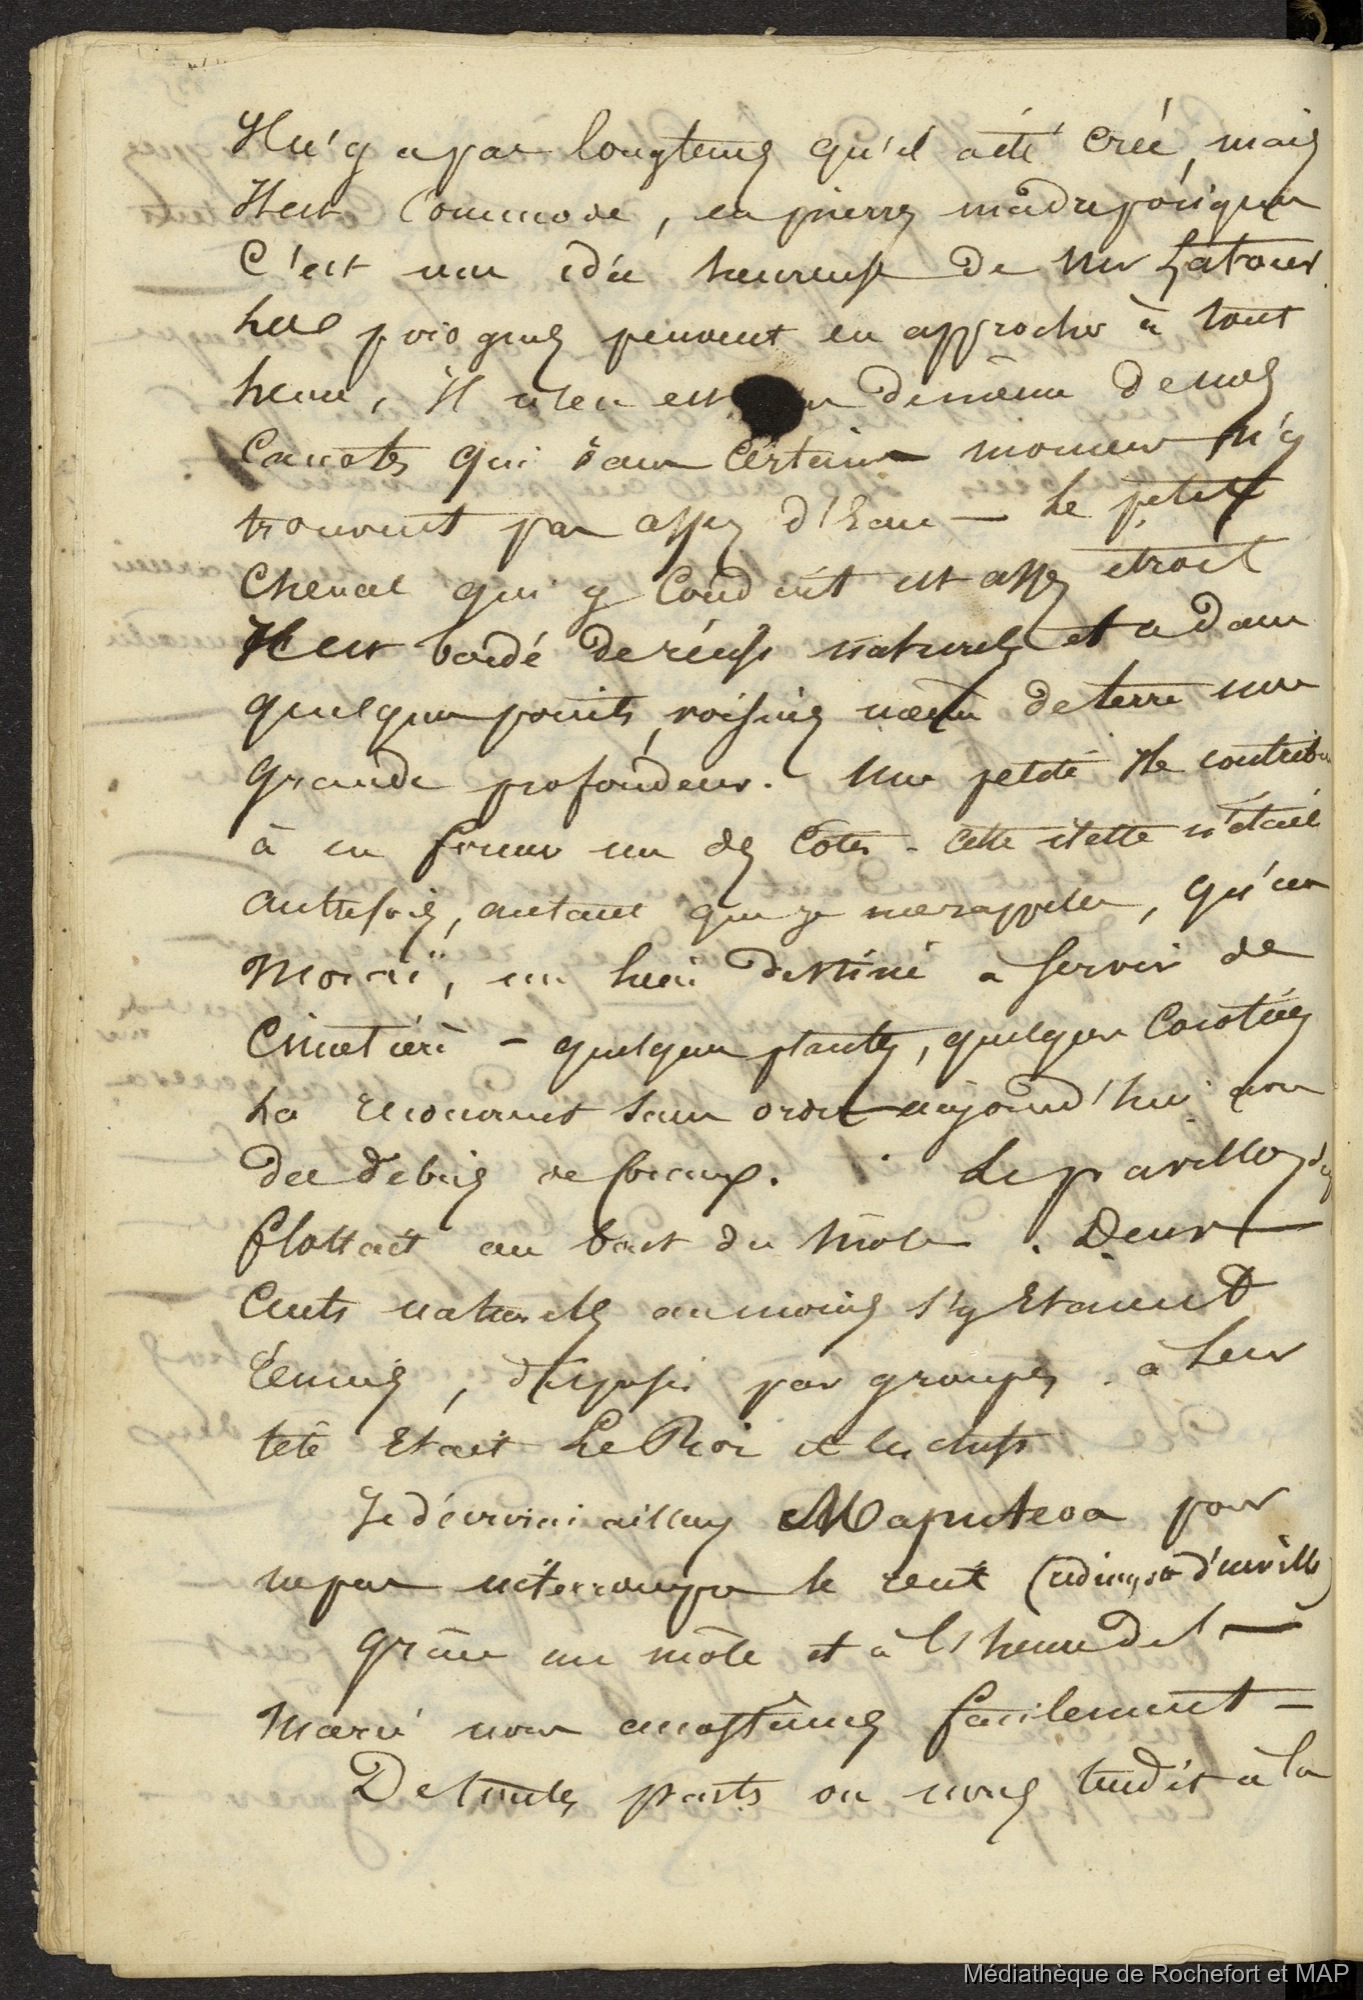 Il n'y a pas longtems qu'il a été créé, mais
Il est commode, en pierres madreporiques
C'est une idée heureuse de Mr Latour
les pirogues peuvent en approcher à tout
heure, Il n'en est pas de même de nos
Canots qui dans certains momens n'y
trouvent pas assez d'eau — Le petit
Chenal qui y conduit est assez etroit
Il est bordé de récifs naturels et a dans
quelques points, voisins même de terre une
grande profondeur. Une petite Ile contribue
à en former un des côtés. cette ilette n'était
autrefois, autant que je me rappelle, qu'un
Moraï, un lieu destiné à servir de
Cimetière – quelques plantes, quelques cocotiers
la recouvrent sans ordre aujourd'hui avec
des débris de coraux. Le pavillon
flottait au bout du môle. Deux
Cents naturels au moins s'y Etaient
réunis, disposés par groupes. à leur
tête Etait Le Roi et les chefs
Je décrirai ailleurs Maputeoa pour
ne pas interrompre le récit (redingote d'urville)
Grâce au môle et à l'heure de la
Marée nous accostâmes facilement –
De toutes parts on nous tendit à la
Médiathèque de Rochefort et MAP